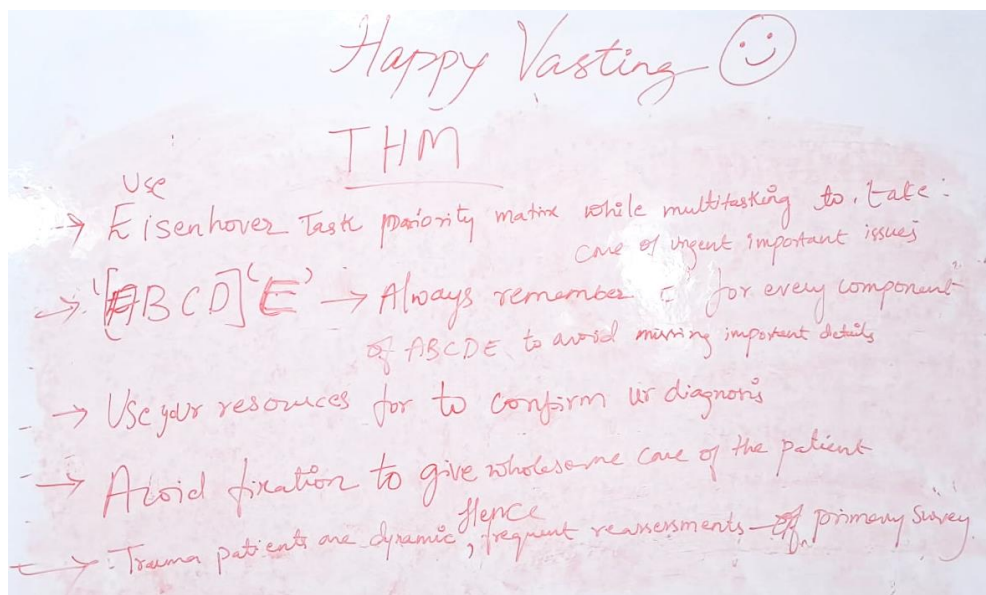 Happy Vasting
THM
Use
→ Eisenhover Task priority matrix while multitasking to take
care of urgent important issues
→ '[ABCD]'E' → Always remember for every component
of ABCDE to avoid missing important details
→ Use your resources for to confirm ur diagnosis
→ Avoid fixation to give wholesome care of the patient
Hence
→ Trauma patients are dynamic, frequent reassessments of primary survey